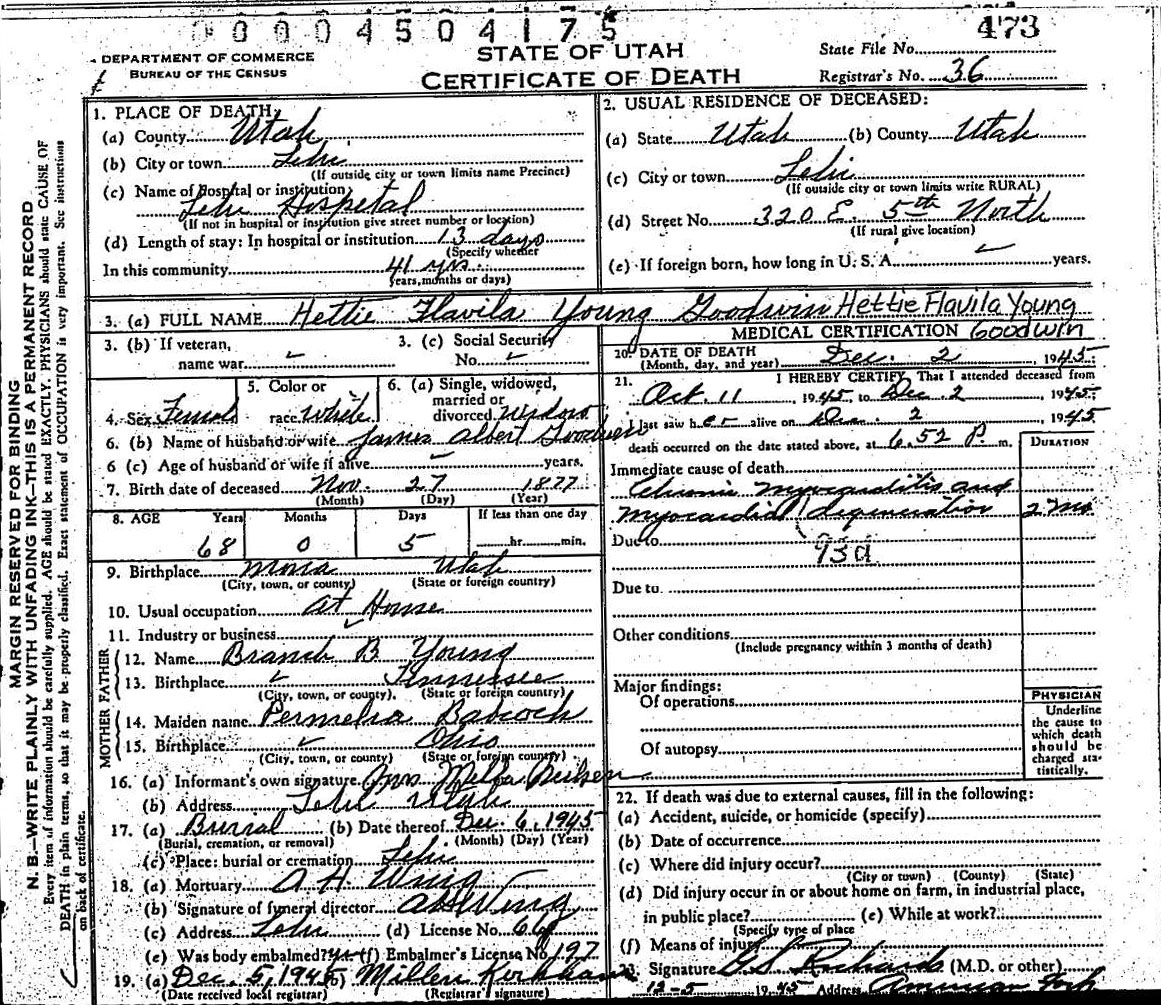 00004504175
473
DEPARTMENT OF COMMERCE
BUREAU OF THE CENSUS
STATE OF UTAH
CERTIFICATE OF DEATH
State File No.
Registrar's No. 36
MARGIN RESERVED FOR BINDING
N. B.—WRITE PLAINLY WITH UNFADING INK—THIS IS A PERMANENT RECORD
Every item of information should be carefully supplied. AGE should be stated EXACTLY. PHYSICIANS should state CAUSE OF
DEATH in plain terms, so that it may be properly classified. Exact statement of OCCUPATION is very important. See instructions
on back of certificate.
1. PLACE OF DEATH:
(a) County Utah
(b) City or town Lehi
(If outside city or town limits name Precinct)
(c) Name of Hospital or institution
Lehi Hospital
(If not in hospital or institution give street number or location)
(d) Length of stay: In hospital or institution 13 days
(Specify whether
In this community 41 yrs.
years, months or days)
2. USUAL RESIDENCE OF DECEASED:
(a) State Utah (b) County Utah
(c) City or town Lehi
(If outside city or town limits write RURAL)
(d) Street No. 320 E. 5th North
(If rural give location)
(e) If foreign born, how long in U. S. A. years.
3. (a) FULL NAME Hettie Flavila Young Goodwin Hettie Flavila Young
Goodwin
3. (b) If veteran,
name war
3. (c) Social Security
No.
4. Sex Female
5. Color or
race White
6. (a) Single, widowed,
married or
divorced Widow
6. (b) Name of husband or wife James Albert Goodwin
6 (c) Age of husband or wife if alive years.
7. Birth date of deceased Nov. 27 1877
(Month) (Day) (Year)
8. AGE Years Months Days If less than one day
68 0 5 hr. min.
9. Birthplace Mona Utah
(City, town, or county) (State or foreign country)
10. Usual occupation At Home
11. Industry or business
FATHER
12. Name Branch B Young
13. Birthplace Tennessee
(City, town, or county) (State or foreign country)
MOTHER
14. Maiden name Permelia Babcock
15. Birthplace Ohio
(City, town, or county) (State or foreign country)
16. (a) Informant's own signature Mrs Melba
(b) Address Lehi Utah
17. (a) Burial (b) Date thereof Dec. 6, 1945
(Burial, cremation, or removal) (Month) (Day) (Year)
(c) Place: burial or cremation Lehi
18. (a) Mortuary A H Wing
(b) Signature of funeral director A H Wing
(c) Address Lehi (d) License No.
(e) Was body embalmed? Yes (f) Embalmer's License No. 197
19. (a) Dec. 5, 1945 (b) Kirkham
(Date received local registrar) (Registrar's signature)
MEDICAL CERTIFICATION
20. DATE OF DEATH
(Month, day, and year) Dec. 2, 1945.
21. I HEREBY CERTIFY, That I attended deceased from
Oct. 11, 1945, to Dec. 2, 1945.
I last saw her alive on Dec. 2, 1945
death occurred on the date stated above, at 6.52 P. m.
DURATION
Immediate cause of death
Chronic Myocarditis and
Myocardial degeneration 2 Mo
Due to
93d
Due to
Other conditions
(Include pregnancy within 3 months of death)
Major findings:
Of operations
Of autopsy
PHYSICIAN
Underline
the cause to
which death
should be
charged sta-
tistically.
22. If death was due to external causes, fill in the following:
(a) Accident, suicide, or homicide (specify)
(b) Date of occurrence
(c) Where did injury occur?
(City or town) (County) (State)
(d) Did injury occur in or about home on farm, in industrial place,
in public place? (e) While at work?
(Specify type of place
(f) Means of injury
Signature G S Richards (M.D. or other)
12-5 1945 Address American Fork